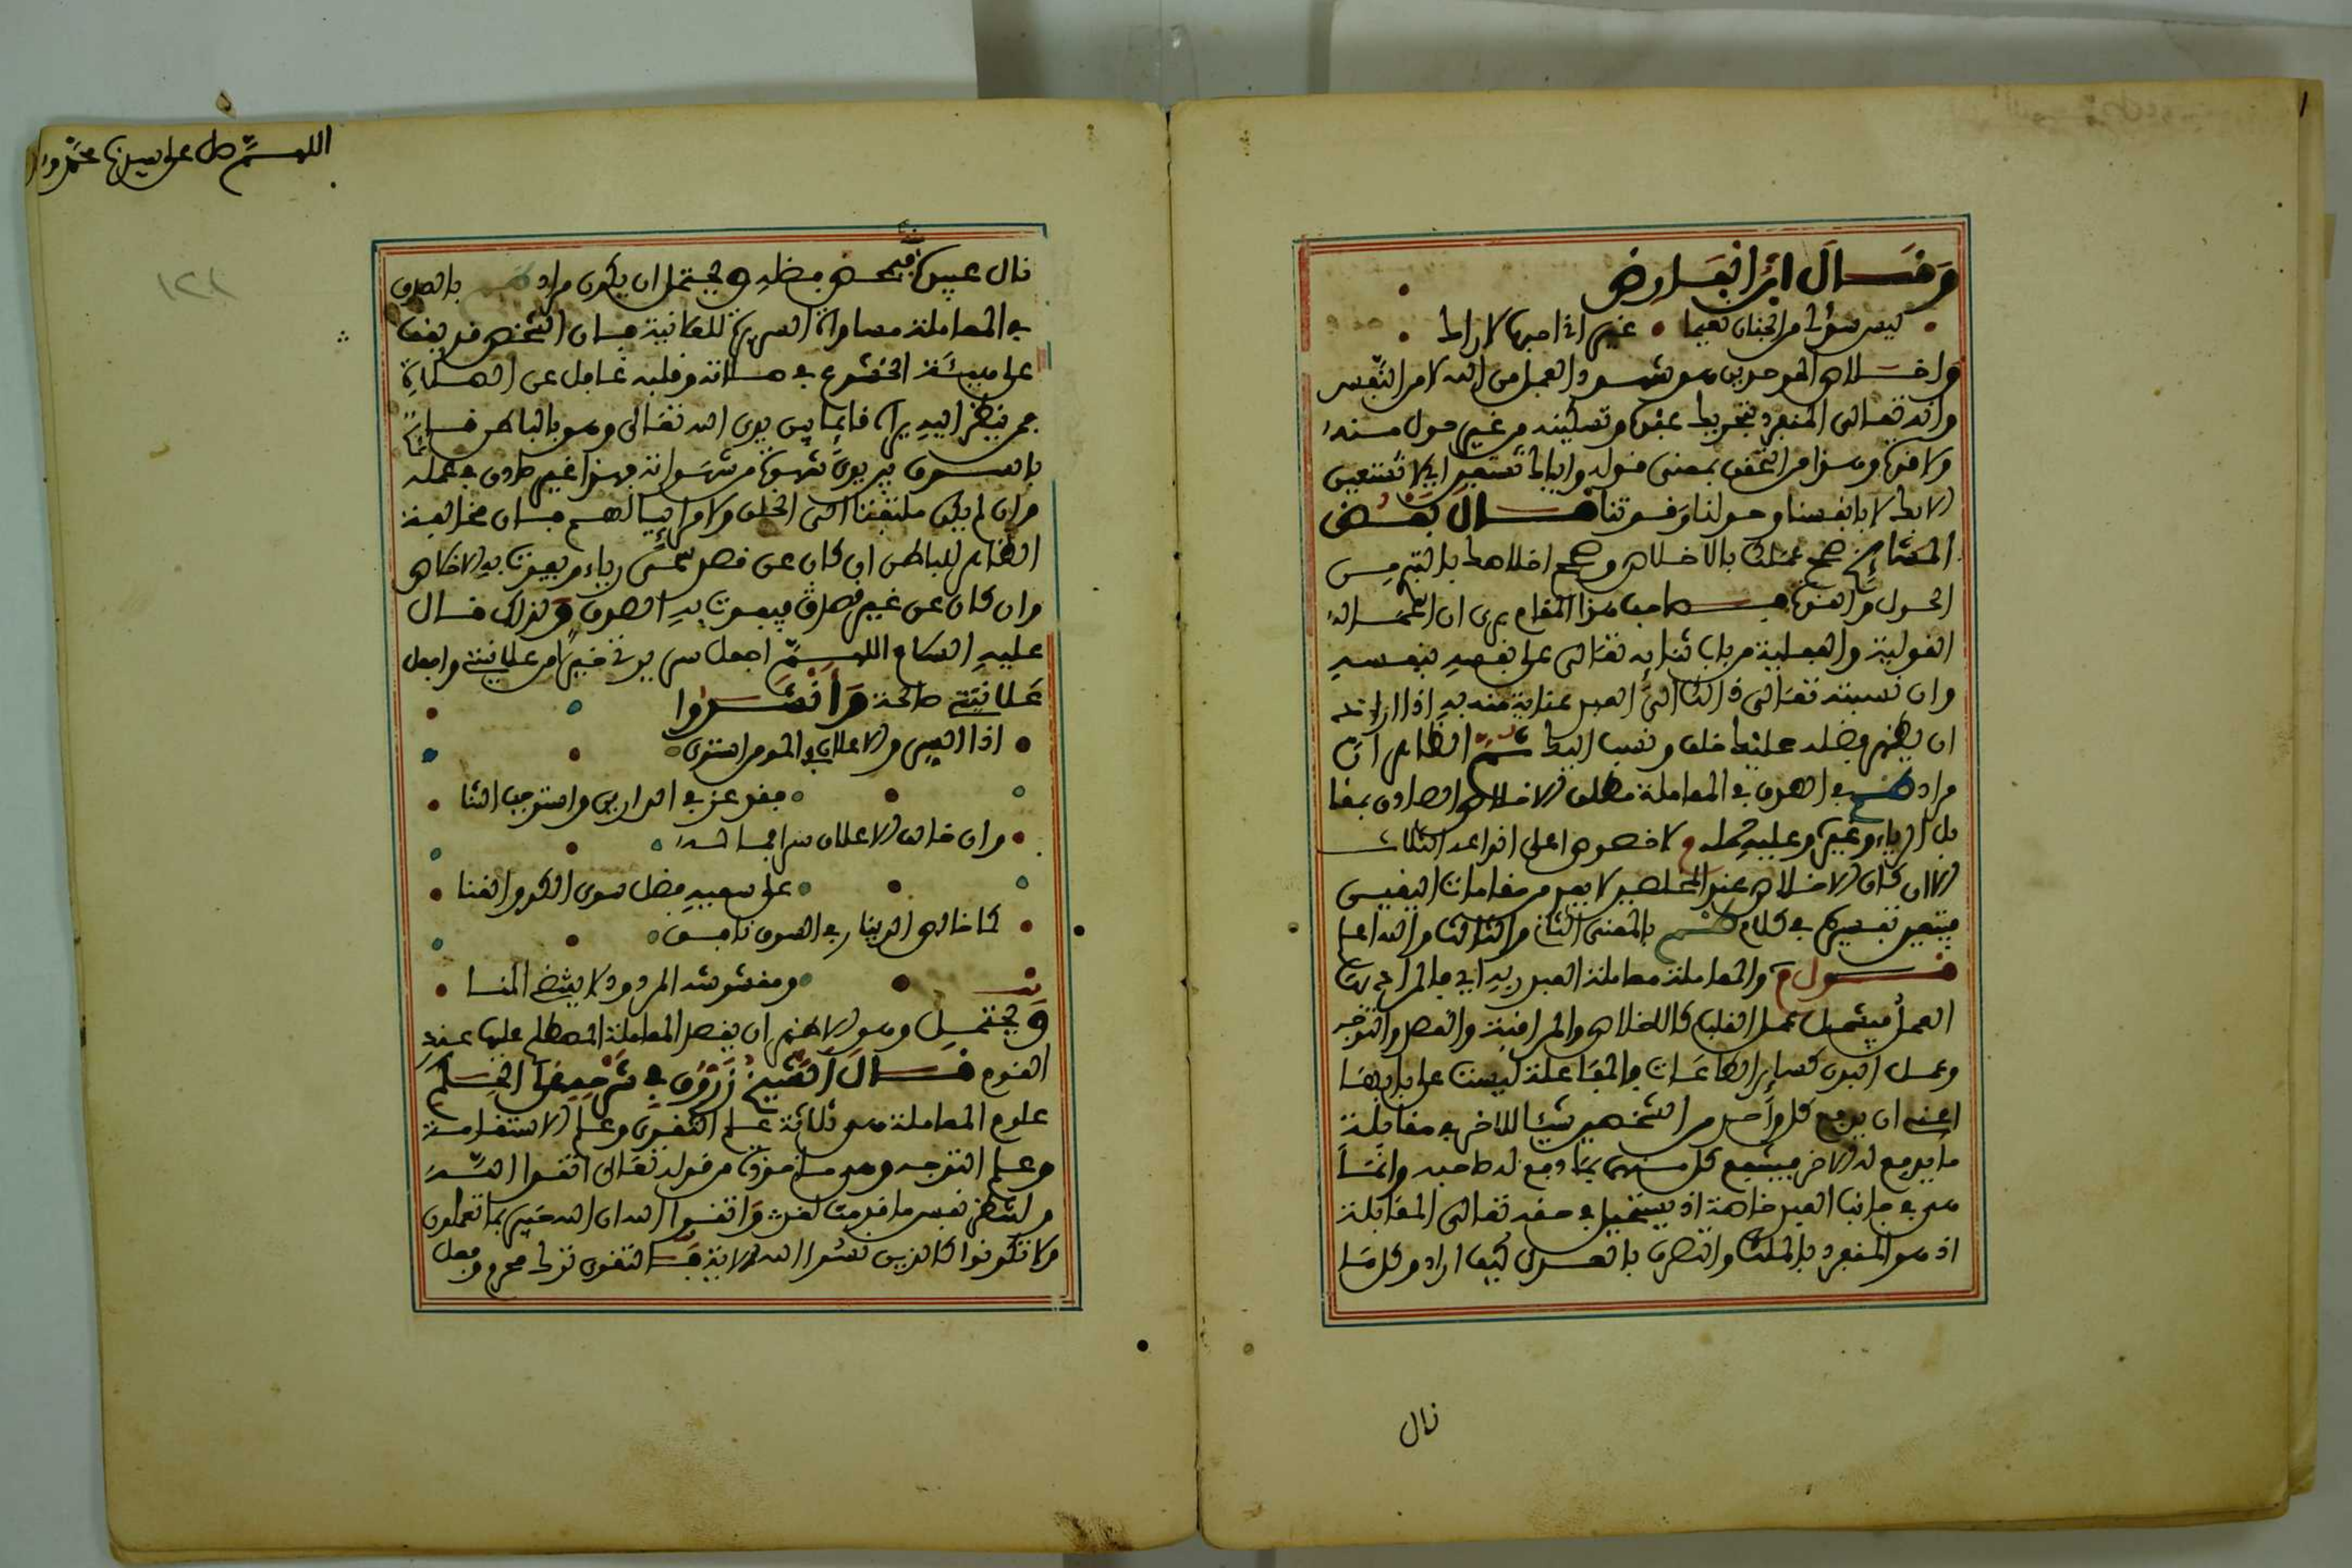 وقال ابن الفارض
ليس سؤلي من الجنان نعيما غير اني احبها لاراك
واخلاص الموحدين هو شهود العمل من الله لا من النفس
وانه تعالى المنفرد بتحريك عبده وتسكينه من غير حول منه
ولا قوة وهذا من التحقق بمعنى قوله واياك نستعين اي لا نستعين
الا بك لا بانفسنا وحولنا وقوتنا قال بعض
المشائخ صحح عملك بالاخلاص وصحح اخلاصك بالتبري من
الحول والقوة فصاحب هذا المقام يرى ان اعماله
القولية والفعلية من باب ثنائه تعالى على نفسه بنفسه
وان نسبته تعالى ذالك الى العبد عناية منه به اذا اراد
ان يظهر فضله عليك خلق ونسب اليك ثم الظاهر ان
مراد في الصدق في المعاملة مطلق الاخلاص الصادق بمقا
بل الرياء وغيره وعليه لا خصوص اعلى انواعه الثلاث
الا ان كان الاخلاص عند المخلصين لا يعد من مقامات اليقين
فيتعين تفسيره في كلام بالمعنى الثاني والثالث والله اعلم
قوله والمعاملة معاملة العبد ربه اي
العمل فيشمل عمل القلب كالاخلاص والمراقبة والقصد والتوجه
وعمل البدن كسائر الطاعات والمفاعلة ليست على بابها
اعني ان يدفع كل واحد من الشخصين شيئا للاخر في مقابلة
ما يدفع له الاخر فينتفع كل منهما بما دفع له صاحبه وانما
هي في جانب العبد خاصة اذ يستحيل في حقه تعالى المقابلة
اذ هو المنفرد بالملك والتصرف بالعدل كيف اراد وكل ما
نال
اللهم صل على سيدنا محمد وا
١٢١
نال عبده فبمحض فضله ويحتمل ان يكون مراد بالصدق
في المعاملة مساواة السريرة للعلانية فان الشخص قد يقف
على هيئة الخشوع في صلاته وقلبه غافل عن الصلاة
فمن ينظر اليه يراه قائما بين يدي الله تعالى وهو بالباطن قائم
بالسوق بين يدي شهوة من شهواته فهذا غير صادق في عمله
وان لم يكن ملتفتا الى الخلق ولا مرائيا لهم فان مخالفة
الظاهر للباطن ان كان عن قصد سمي رياء ويفوت به الاخلاص
وان كان عن غير قصد فيفوت به الصدق ولذلك قال
عليه السلام اللهم اجعل سريرتي خيرا من علانيتي واجعل
علانيتي صالحة وانشدوا
اذا السر والاعلان في المومن استوى
فقد عز في الدارين واستوجب الثنا
وان خالف الاعلان سرا فما له
على سعيه فضل سوى الكد والعنا
كما خالص الدينار في السوق نافق
ومغشوشه المردود لا يقتضي المنا
ويحتمل وهو الاظهر ان يقصد المعاملة المصطلح عليها عند
القوم قال الشيخ زروق في شرحه على الحكم
علوم المعاملة هي ثلاثة علم التقوى وعلم الاستقامة
وعلم التوجه وهو ماخوذ من قوله تعالى اتقوا الله
ولتنظر نفس ما قدمت لغد واتقوا الله ان الله خبير بما تعملون
ولا تكونوا كالذين نسوا الله الاية التقوى ترك محرم وفعل